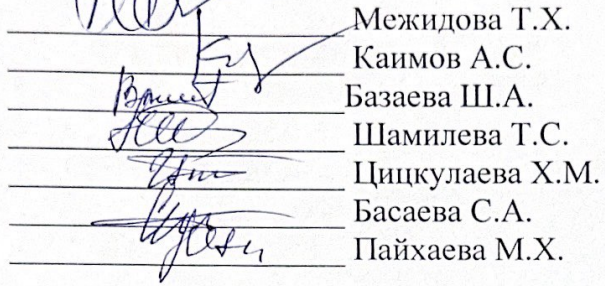 Межидова Т.Х.
Каимов А.С.
Базаева Ш.А.
Шамилева Т.С.
Цицкулаева Х.М.
Басаева С.А.
Пайхаева М.Х.